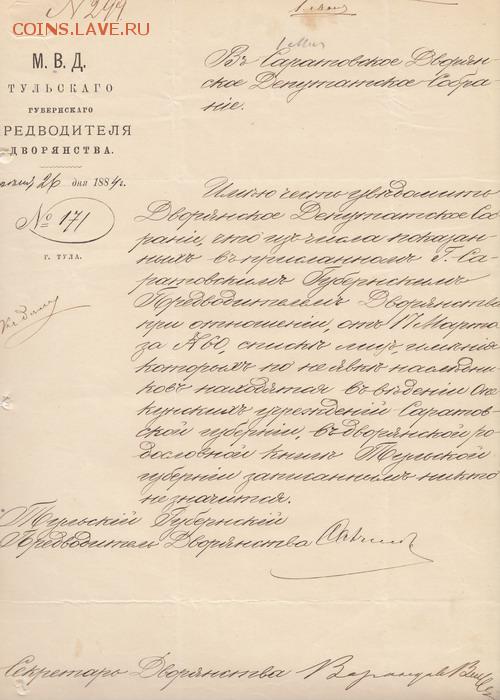 COINS.LAVE.RU
№ 244
1 Мая
М. В. Д.
ТУЛЬСКАГО
ГУБЕРНСКАГО
РЕДВОДИТЕЛЯ
ДВОРЯНСТВА.
26 дня 1884 г.
№ 171
Г. ТУЛА.
Въ Саратовское Дворян-
ское Депутатское Собра
ніе.
Имѣю честь увѣдомить
Дворянское Депутатское Со
раніе, что изъ числа показан
ныхъ въ присланномъ Г. Са-
ратовскимъ Губернскимъ
Предводителемъ Дворянства
при отношеніи, отъ 17 Марта
за №60, спискѣ лицъ, имѣнія
которыхъ по неявкѣ наслѣдни
ковъ находятся въ вѣденіи Опе
кунскихъ учрежденій Саратов-
ской губерніи, въ дворянской ро
дословной книгѣ Тульской
губерніи записаннымъ никто
не значится.
Тульскій Губернскій
Предводитель Дворянства
Секретарь Дворянства